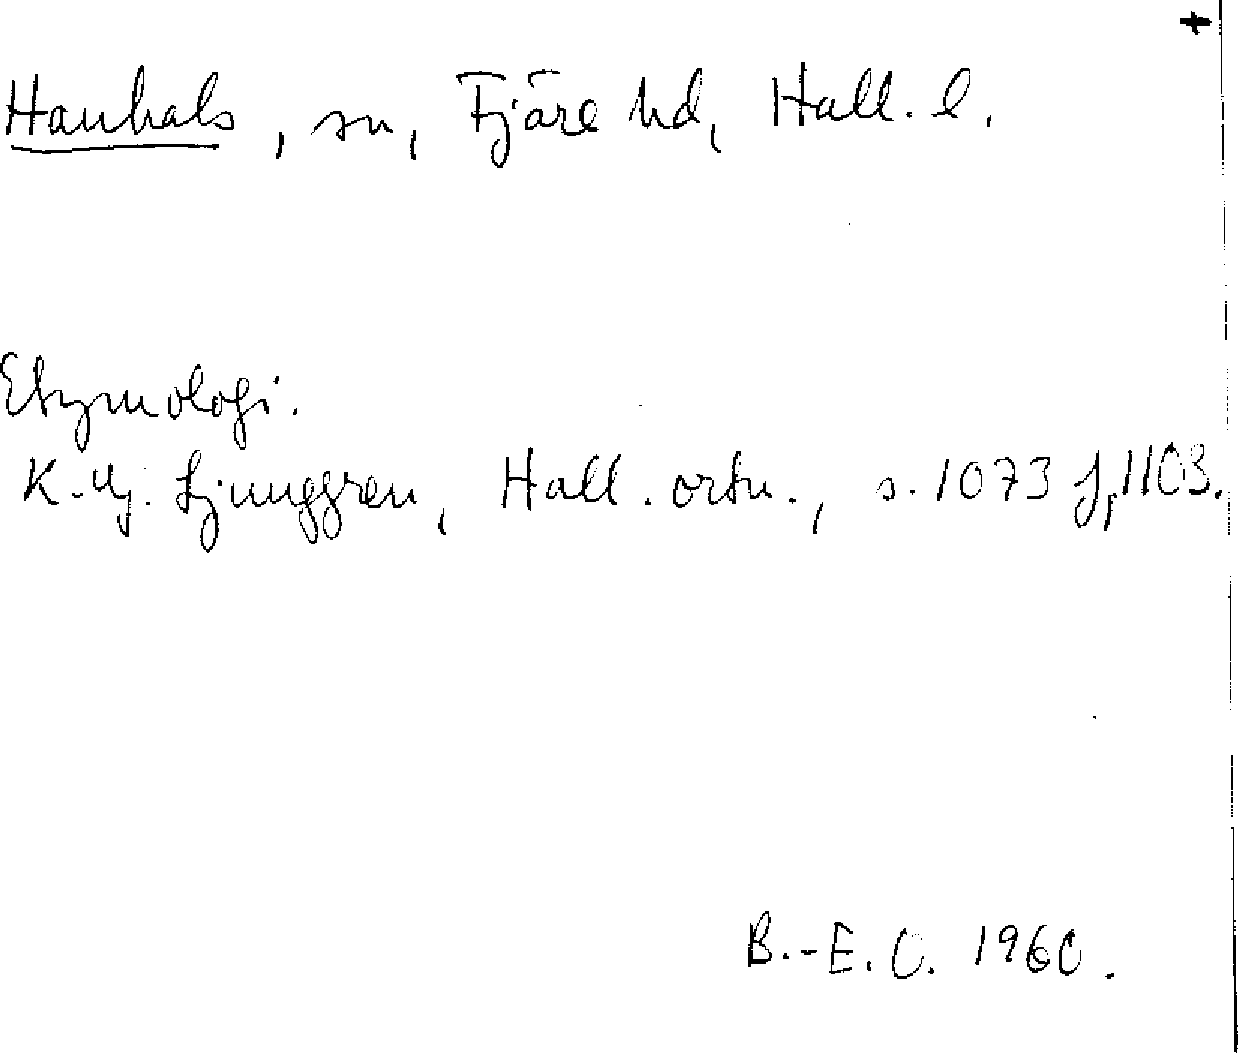 Hanhals, sn, Fjäre hd, Hall. l.
Etymologi.
K. G. Ljunggren, Hall. ortn., s. 1073 f, 1103.
B.-E. O. 1960.